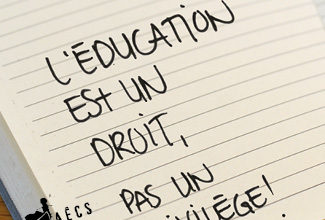 L'ÉDUCATION
EST UN
DROIT,
PAS UN
PRIVILÈGE!
AÉCS